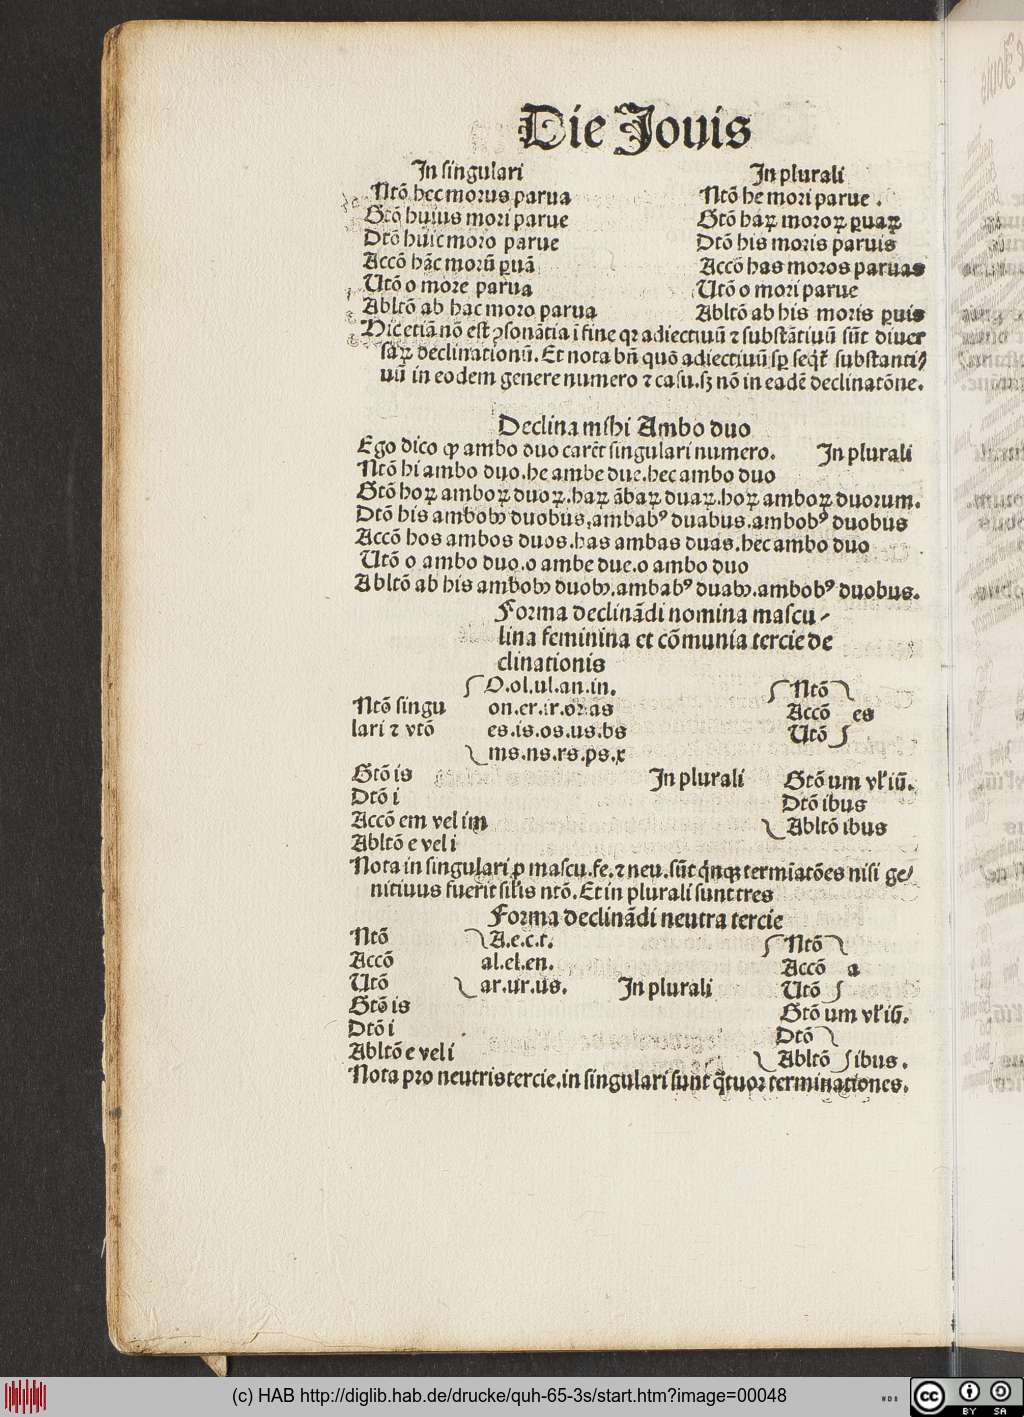 Die Jouis
In singulari
Ntō hec morus parua
Gtō huius mori parue
Dtō huic moro parue
Accō hãc morũ ꝑuã
Utō o more parua
Abltō ab hac moro parua
In plurali
Ntō he mori parue .
Gtō haꝝ moroꝝ ꝑuaꝝ
Dtō his moris paruis
Accō has moros paruas
Utō o mori parue
Abltō ab his moris ꝑuis
Hic etiã nō est ꝯsonãtia ĩ fine qꝛ adiectiuũ ⁊ substãtiuũ sũt diuer
saꝝ declinationũ. Et nota bñ quō adiectiuũ sꝑ seqͥt̃ substanti⸗
uũ in eodem genere numero ⁊ casu. sꝫ nō in eadẽ declinatōne.
Declina mihi Ambo duo
Ego dico ꝙ ambo duo carẽt singulari numero. In plurali
Ntō hi ambo duo. he ambe due. hec ambo duo
Gtō hoꝝ amboꝝ duoꝝ. haꝝ ãbaꝝ duaꝝ. hoꝝ amboꝝ duorum.
Dtō his ambobꝰ duobus, ambabꝰ duabus. ambobꝰ duobus
Accō hos ambos duos. has ambas duas. hec ambo duo
Utō o ambo duo. o ambe due. o ambo duo
Abltō ab his ambobꝰ duobꝰ. ambabꝰ duabꝰ. ambobꝰ duobus.
Forma declinãdi nomina mascu⸗
lina feminina et cōmunia tercie de
clinationis
Ntō singu
lari ⁊ vtō
O. ol. ul. an. in.
on. er. ir. or. as
es. is. os. us. bs
ms. ns. rs. ps. x
Ntō
Accō es
Utō
Gtō is
Dtō i
Accō em vel im
Abltō e vel i
In plurali
Gtō um vl̓ iũ.
Dtō ibus
Abltō ibus
Nota in singulari ꝓ mascu. fe. ⁊ neu. sũt qͥnqꝫ termiatōes nisi ge⸗
nitiuus fuerit silĩs ntō. Et in plurali sunt tres
Forma declinãdi neutra tercie
Ntō
Accō
Utō
A. e. c. t.
al. el. en.
ar. ur. us.
Gtō is
Dtō i
Abltō e vel i
In plurali
Ntō
Accō a
Utō
Gtō um vl̓ iũ.
Dtō
Abltō ibus .
Nota pro neutris tercie, in singulari sunt q̃tuor terminationes.
(c) HAB http://diglib.hab.de/drucke/quh-65-3s/start.htm?image=00048
WDB
cc
BY SA